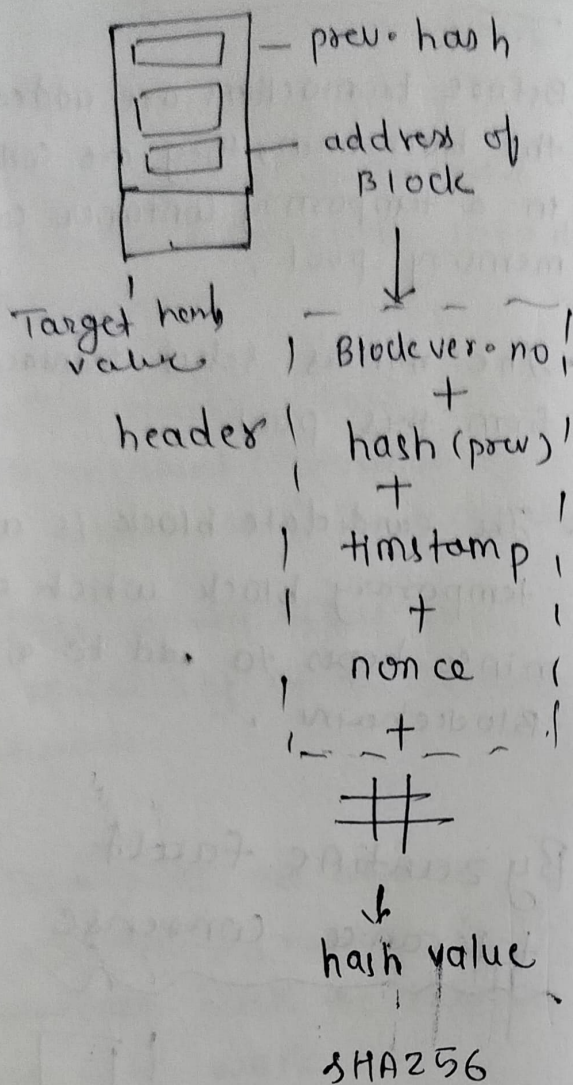 prev. hash
address of
Block
Target hash
value
header
Block ver. no
+
hash (prev)
+
timstamp
+
nonce
+
#
hash value
SHA256